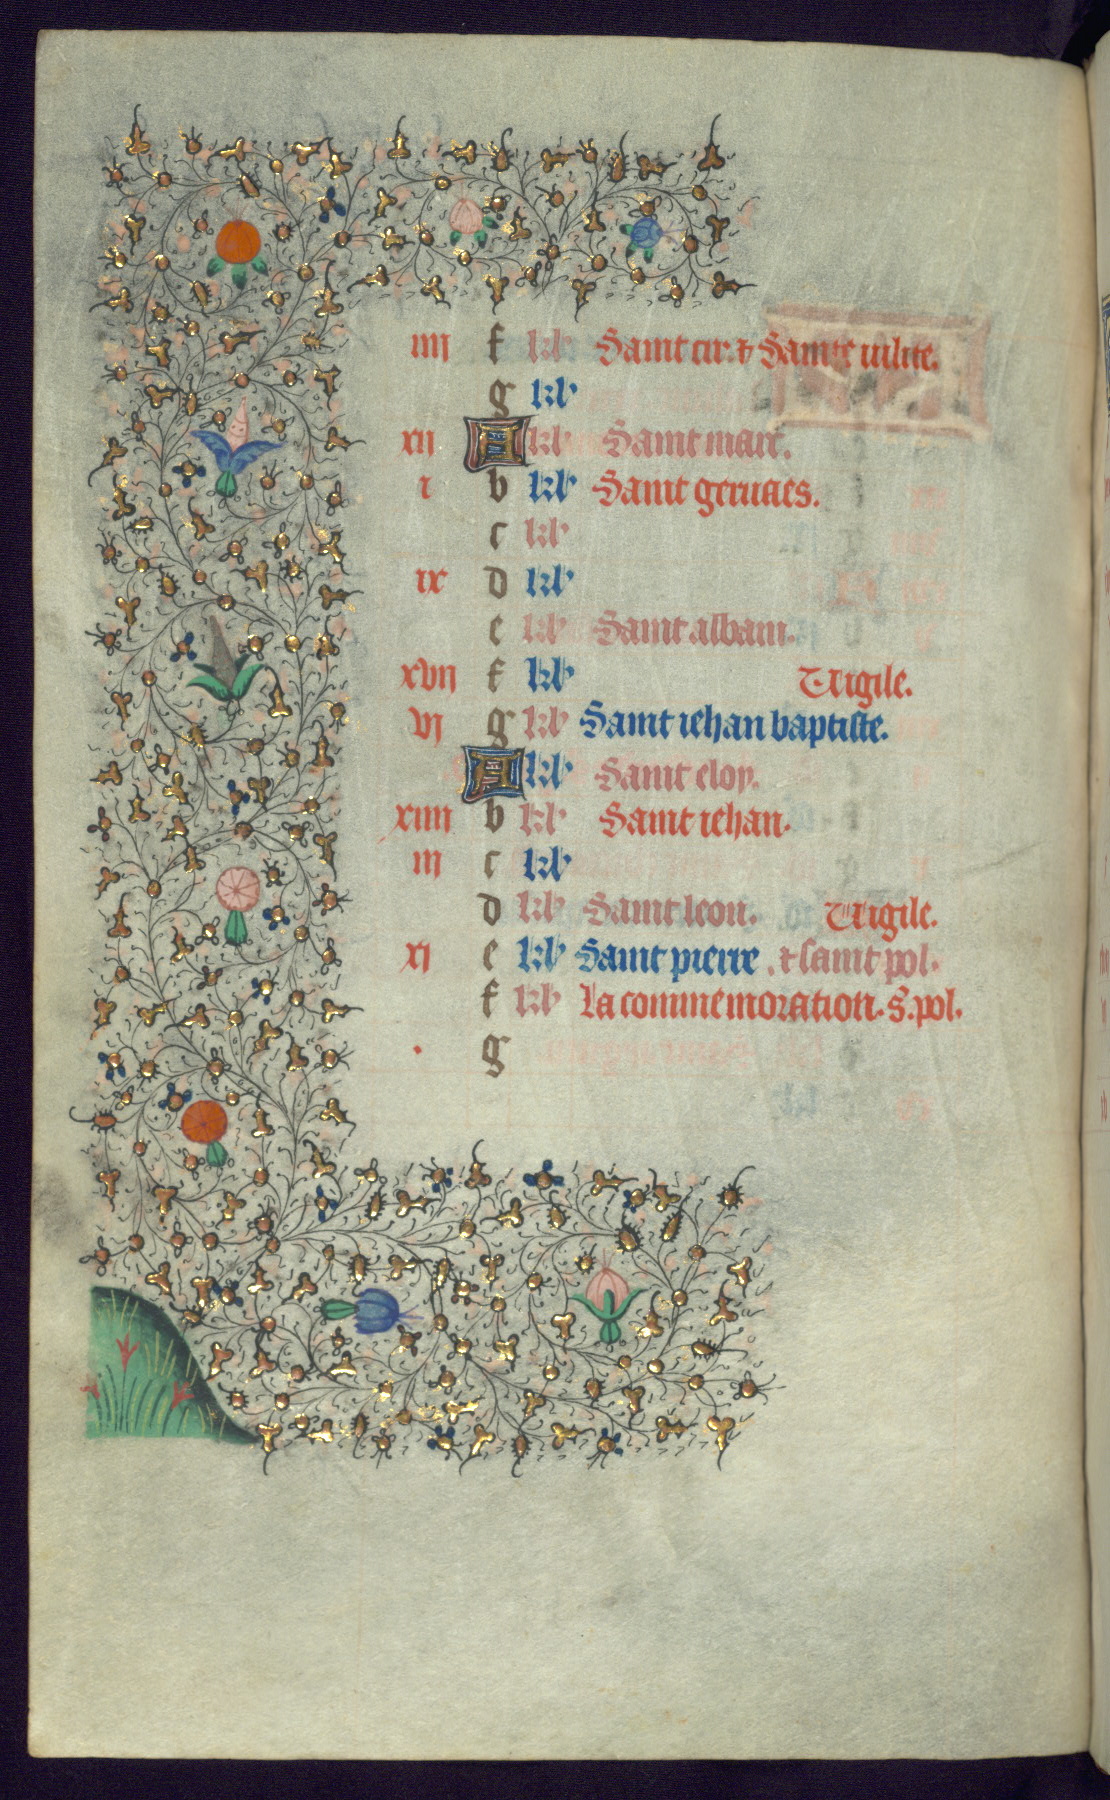 iiii f kl' Saint cir. & Sainte iulite.
g kl'
xii A kl' Saint marc.
i b kl' Saint geruaes.
c kl'
ix d kl'
e kl' Saint albain.
xvii f kl' Uigile.
vi g kl' Saint iehan baptiste.
A kl' Saint eloy.
xiiii b kl' Saint iehan.
iii c kl'
d kl' Saint leon. Uigile.
xi e kl' Saint pierre . & saint pol.
f kl' La commemoration. S. pol.
. g